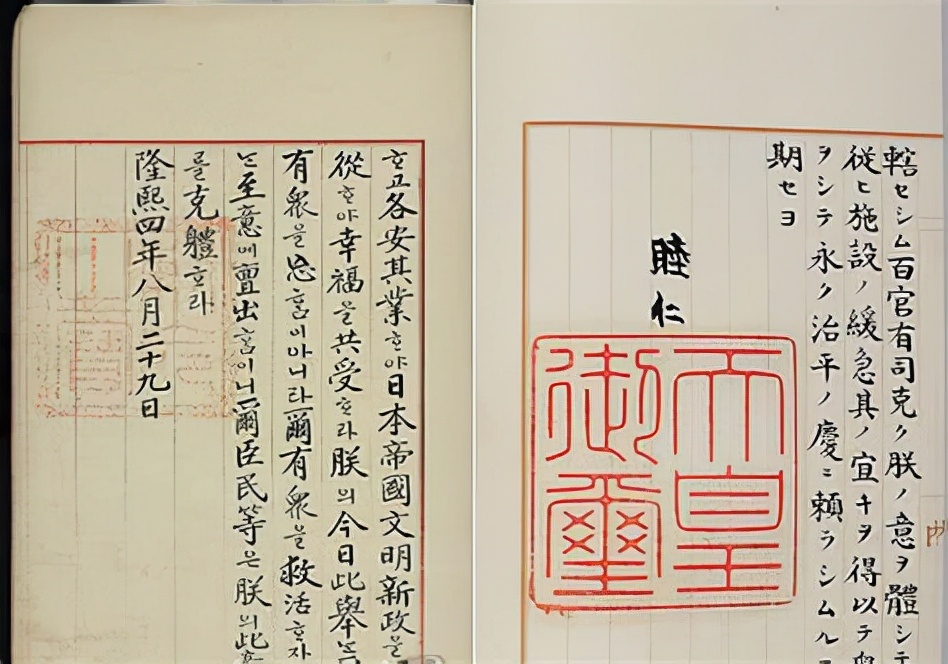 ᄒᆞ고各安其業ᄒᆞ야日本帝國文明新政을
從ᄒᆞ야幸福을共受ᄒᆞ라朕의今日此擧는
有衆을忘홈이아니라爾有衆을救活ᄒᆞ자
는至意에亶出홈이니爾臣民等은朕의此
를克體ᄒᆞ라
隆熙四年八月二十九日
轄セシム百官有司克ク朕ノ意ヲ體シテ
從ヒ施設ノ緩急其ノ宜キヲ得以テ
ヲシテ永ク治平ノ慶ニ頼ラシムル
期セヨ
睦仁
天皇
御璽